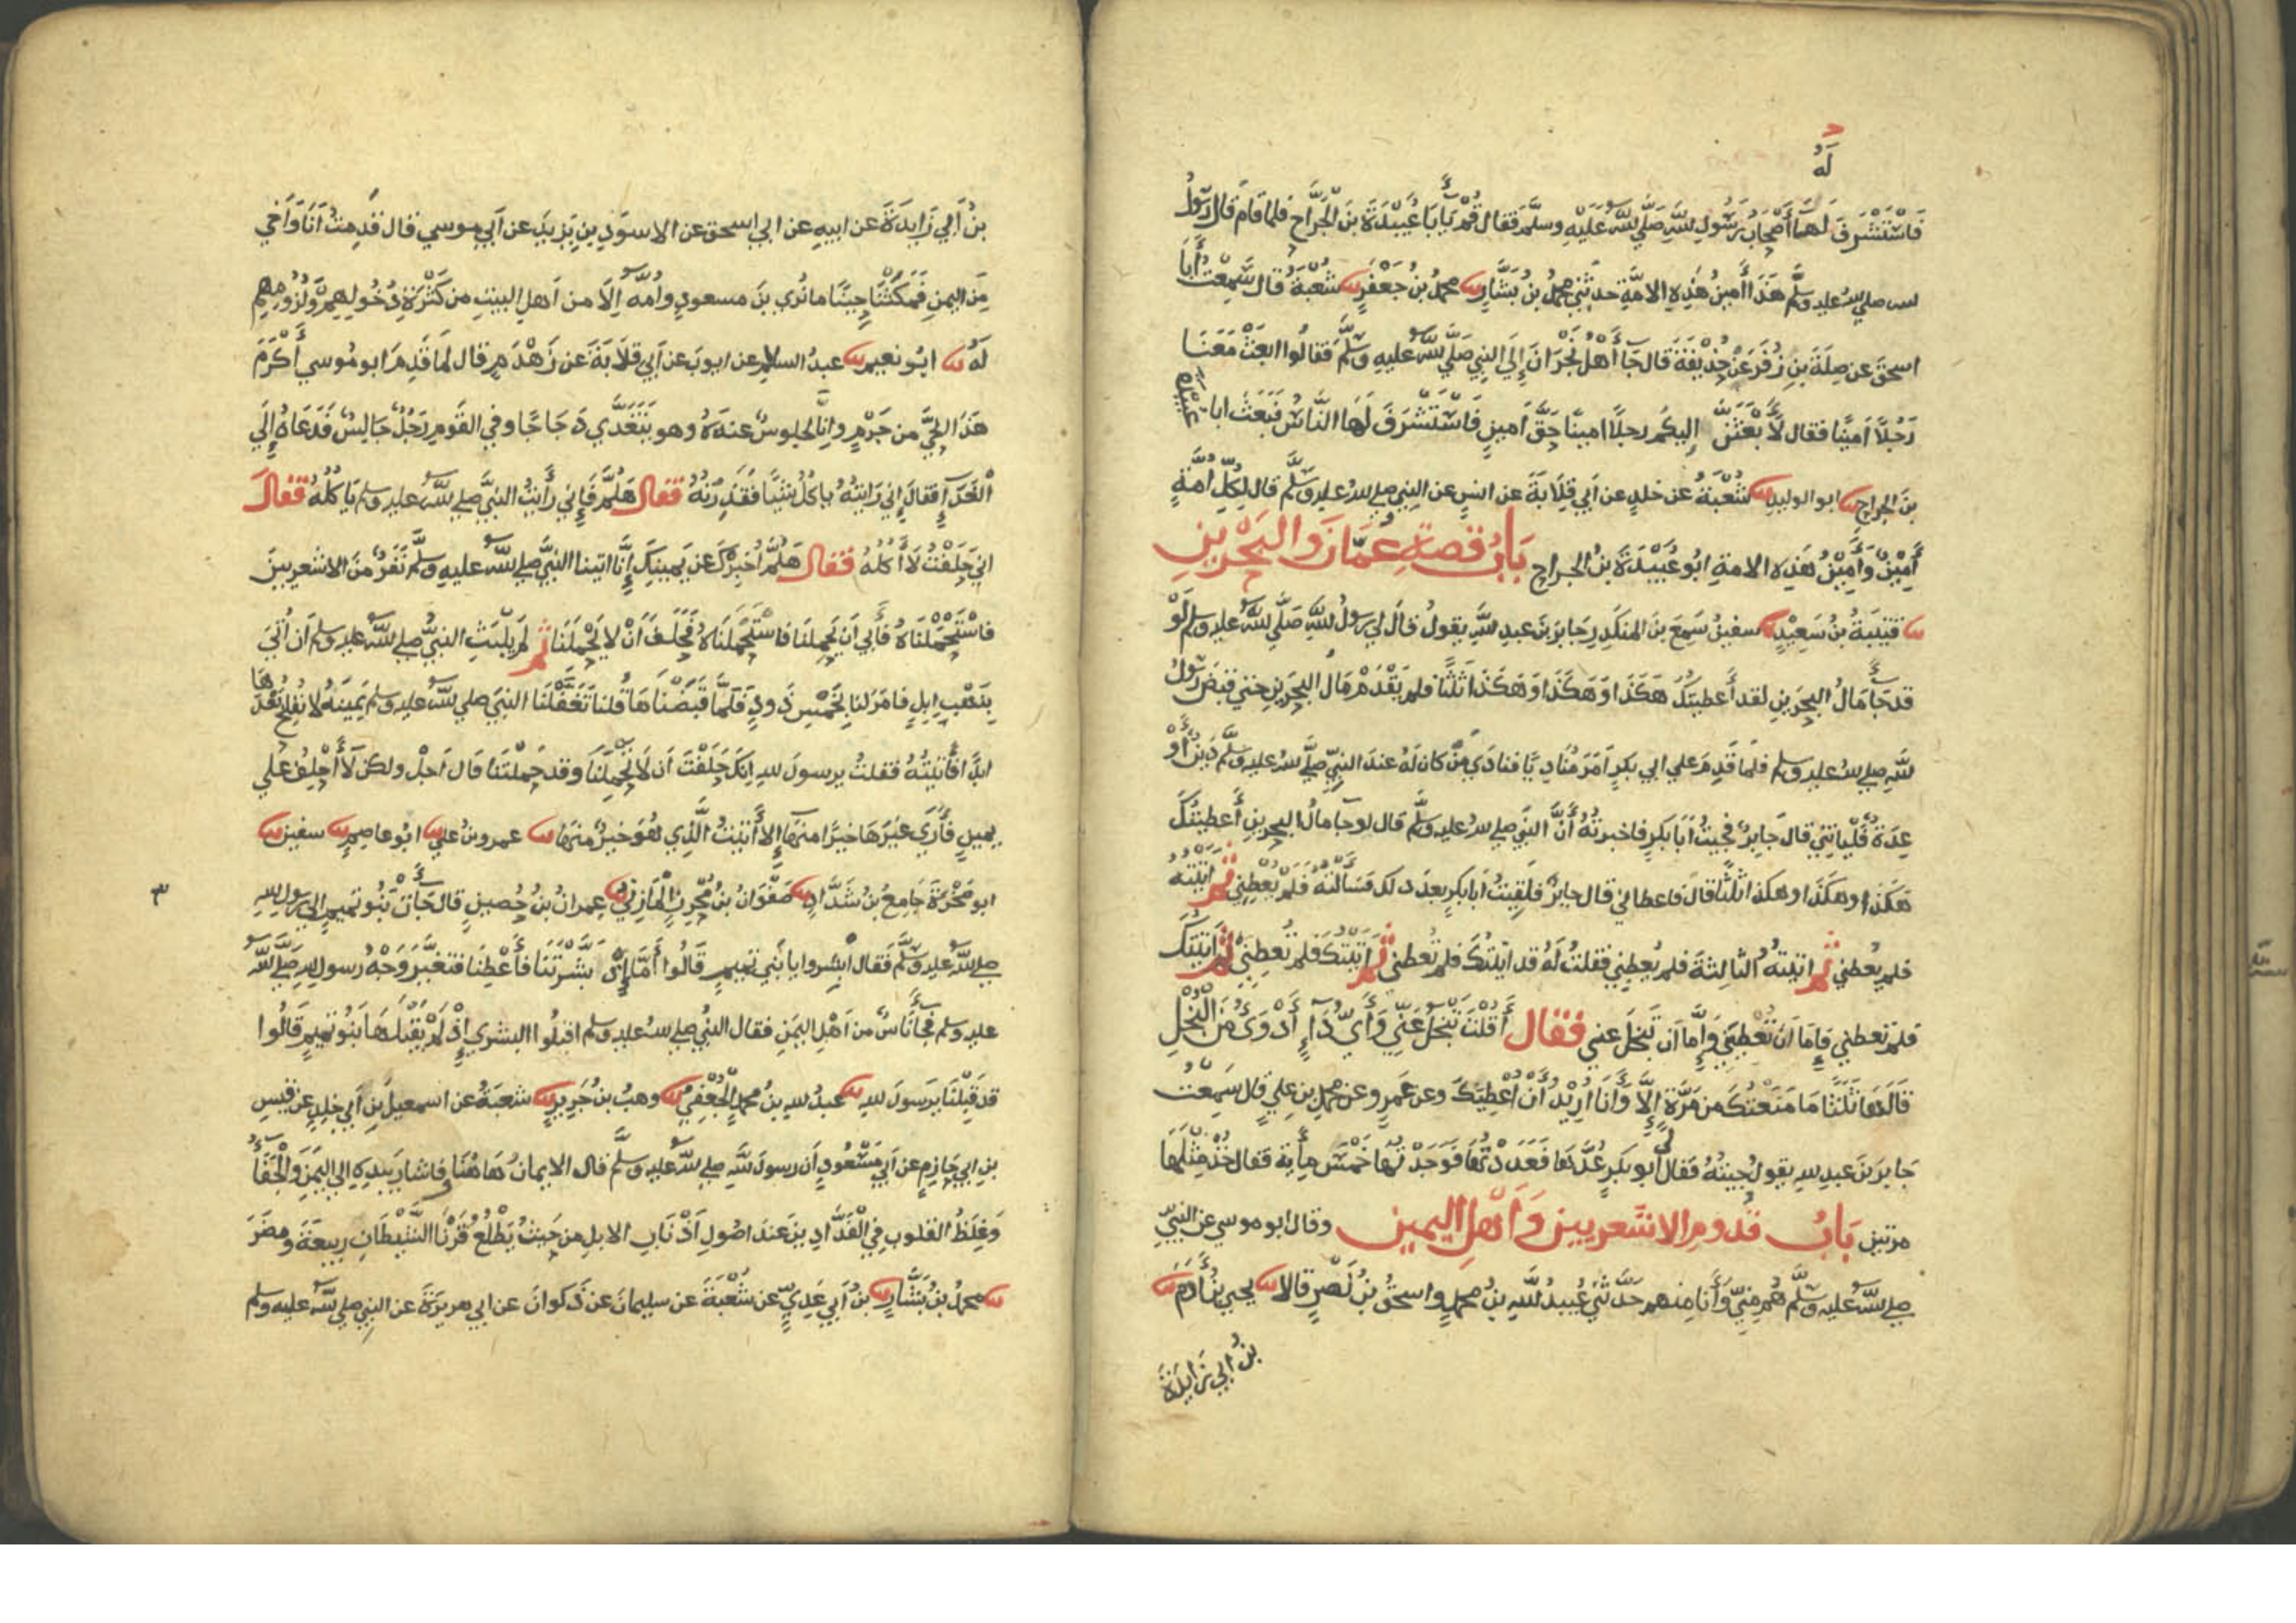 لَهُ
فَاسْتَشْرَفَ لَهَا أَصْحَابُ رَسُولِ اللهِ صَلَّي اللهُ عَلَيْهِ وسلَّم فقال قُمْ يَا أَبَا عُبَيْدَةَ بنَ الجَرَّاحِ فلما قام قال رسولُ
الله صلي الله عليه وسلَّم هَذَا أَمِينُ هَذِهِ الامَّةِ حدثني محمدُ بنُ بَشَّارٍ ثنا محمدُ بنُ جَعْفَرٍ ثنا شُعْبَةُ قال سَمِعْتُ أَبَا
اسحقَ عن صِلَةَ بنِ زُفَرَ عَنْ حُذَيْفَةَ قال جَاَ أَهْلُ نَجْرَانَ إِلَي النبيِ صَلَّي اللهُ عليهِ وسلَّم فقالُوا ابعَثْ مَعَنَا
رَجُلًا اَمِينًا فقال لَأَبْعَثَنَّ إليكُم رجلًا امينًا حَقَّ اَمِينٍ فَاسْتَشْرَفَ لَهَا النَّاسُ فَبَعَثَ ابا عُبَيْدَةَ
بنَ الجراحِ ثنا ابو الوليدِ ثنا شُعْبَةُ عن خلدٍ عن اَبي قِلَابَةَ عن انسٍ عن النبيِ صلي اللهُ عليه وسلَّم قال لِكُلِّ اُمَّةٍ
أَمِيْنٌ وَأَمِيْنُ هَذِهِ الامةِ ابُو عُبَيْدَةَ بنُ الجراحِ بَابُ قصةِ عُمَانَ وَالبَحْرَينِ
ثنا قتيبَةُ بنُ سَعِيْدٍ ثنا سفينُ سَمِعَ بنَ المنكَدِرِ جَابِرَ بنَ عبدِ اللهِ يقولُ قال لي رسولُ اللهِ صَلَّي اللهُ عليه وسلم لَوْ
قد جَاَ مَالُ البحرَينِ لقد أَعطيتُكَ هَكَذَا وَهَكَذَا وَهَكَذَا ثَلثًا فلم يَقْدَمْ مَالُ البحرَينِ حتي قبض رسولُ
اللهِ صلي اللهُ عليه وسلم فلَمَّا قَدِمَ علي ابي بكرٍ اَمَرَ مُنَادِيًا فنادَي مَنْ كان لَهُ عندَ النبيِّ صلَّي اللهُ عليه وسلَّم دَينٌ أَوْ
عِدَةٌ فَلْيَاتِنِي قال جَابِرٌ فجيتُ اَبَا بكرٍ فاخبرتُهُ أَنَّ النبيَ صلي اللهُ عليه وسلَّم قال لو جَاَ مَالُ البحرينِ أَعطيتُكَ
هَكَذَا وهكَذَا وهكذا ثلثًا قال فاعطاني قال جابرٌ فلَقِيتُ اَبا بكرٍ بعدَ ذلك فَسَأَلْتُهُ فَلَمْ يُعْطِنِي ثم اتيتُهُ
فلم يُعطني ثم اتيتهُ الثالثةَ فلم يُعطِني فقلتُ لَهُ قد اتيتُكَ فلم تُعطني ثم اَتَيْتُكَ فلم تُعطِنِيْ ثم اَتيتكَ
فلم تعطني فإِمَا اَن تُعْطِيَنِي وَإِمَّا اَن تَبْخَلَ عني فقال أَقُلْتَ تَبْخَلُ عَنِّي وَأَيُّ دَاٍ أَدْوَىُ مِنَ البُخْلِ
قَالَهَا ثَلثًا مَا مَنَعْتُكَ من مَرَّةٍ إِلَّا وَأَنَا اُرِيْدُ أَنْ اُعْطِيَكَ وعن عَمرٍو عن محمدِ بنِ عليٍ قال سَمِعْتُ
جَابِرَ بنَ عبدِ اللهِ يقول جِيتُهُ فَقالَ لي أَبو بكرٍ عُدَّهَا فَعَدَدْتُهَا فَوَجَدْتُهَا خَمْسَ مِأَيةٍ فقال خُذْ مِثْلَهَا
مرتينِ بَابُ قدومِ الاشعريينَ وَأَهْلِ اليمينِ وقال ابو موسي عن النبيِّ
صلي اللهُ عليه وسلَّم هُم مِنِّي وَأَنَا مِنهم حدَّثني عُبيدُ اللهِ بنُ محمدٍ واسحقُ بنُ نَصْرٍ قالا ثنا يحيي بنُ أَدَمَ ثنا
بنُ ابي زَايدَةَ
بنُ اَبي زَايدَةَ عن ابيهِ عن ابي اسحق عن الاسوَدِ بنِ يَزيدَ عن اَبي موسي قال قَدِمتُ اَنَا وَاَخي
مِنَ اليمنِ فَمَكَثْنَا حِينًا ما نُري بنَ مسعودٍ وامَّهُ إِلَّا من اَهلِ البيتِ من كَثْرَةِ دُخُولِهِم وَلُزُومِهِم
لَهُ ثنا ابُو نعيمٍ ثنا عبدُ السلامِ عن ايوبَ عن اَبي قلَابَةَ عن زَهْدَمٍ قال لَمَا قَدِمَ ابو مُوسي أَكْرَمَ
هَذَا الحَيَّ من جَرْمٍ وانَّا لَجلوسٌ عندَهُ وهو يَتَغَدَّي دَجَاجًا وفي القَومِ رَجُلٌ جَالِسٌ فَدَعَاهُ إِلَي
الْغَدَاءِ فقالَ إِني رَايتُهُ يا كلُ شَيًا فقَذِرْتُهُ فقال هَلُمَّ فَإِني رأَيتُ النبيَّ صلي اللهُ عليه وسلم يَاكلُهُ فقالَ
اني حَلَفْتُ لَا أَكُلُهُ فقال هَلُمَّ اُخبِرْكَ عن يَمينِكَ إِنَّا اتينا النبيَّ صلي اللهُ عليهِ وسلَّم نَفَرٌ مِنَ الاشعريينَ
فاسْتَحْمَلْنَاهُ فأَبي اَن يَحمِلنَا فاستَحْمَلنَاهُ فَحَلَفَ اَنْ لا يَحْمِلَنَا ثم لَم يلْبَثِ النبيُّ صلي اللهُ عليه وسلم اَن اُتيَ
بِنَهْبِ اِبلٍ فامَرَ لنا بخَمْسِ ذَودٍ فَلَمَّا قَبَضْنَاهَا قُلنا تَغَفَّلْنَا النبيَ صلي اللهُ عليه وسلم يَمِينَهُ لا نُفلِحُ بَعْدَهَا
ابدًا فأَتيتُهُ فقلتُ يرسولَ اللهِ اِنكَ حَلَفْتَ اَن لَا تحْمِلَنَا وقد حَملتَنَا قال اَجَلْ ولكن لَا أَحْلِفُ علي
يمينٍ فأَرَي غيرَهَا خيرًا منهَا إِلا أَتَيْتُ الَّذِي هُوَ خيرٌ منهَا ثنا عمرو بنُ عليٍ ثنا ابُو عاصمٍ ثنا سفينُ ثنا
ابو صَخْرَةَ جَامِعُ بنُ شَدَّادٍ ثنا صَفْوَانُ بنُ مُحْرِزٍ المَازِنِيُ ثنا عِمرانُ بنُ حُصينٍ قال جَأَتْ بَنُو تميمٍ الي رسول اللهِ
صلي اللهُ عليه وسلَّم فَقال ابْشِروا يا بَني تميمٍ قَالُوا أَمَّا إِذْ بَشَّرْتَنَا فأَعْطِنَا فتَغَيَّرَ وَجْهُ رسول اللهِ صَلَّي اللهُ
عليه وسلم فجأَ نَاسٌ من اَهْلِ اليمَنِ فقال النبيُ صلي اللهُ عليه وسلم اقبلُوا البشري إِذْ لَمْ يَقْبَلْهَا بَنُو تميمٍ قَالُوا
قد قَبِلْنَا يَرسولَ اللهِ ثنا عبدُ اللهِ بنُ محمدٍ الجُعْفِيُّ ثنا وهبُ بنُ جَريرٍ ثنا شعبَةُ عن اسمعيلَ بنِ اَبي خلدٍ عن قيسِ
بنِ ابي حَازِمٍ عن اَبي مَسْعُودٍ اَن رسولَ اللهِ صلي اللهُ عليه وسلَّم قال الايمانُ هَاهُنَا فاشارَ بيدِهِ الي اليَمَنِ وَالْجَفَأُ
وَغِلَظُ القلوبِ فِي الْفَدَّادِينَ عندَ اصُولِ اَذْنَابِ الابلِ من حَيثُ يَطْلُعُ قَرْنَا الشَّيْطَانِ رَبِيعَةَ ومُضَرَ
ثنا محمدُ بنُ بَشَّارٍ ثنا بنُ اَبي عَدِيٍّ عن شُعْبَةَ عن سليمانَ عن ذَكوانَ عن ابي هريرَةَ عن النبيِ صلي اللهُ عليه وسلم